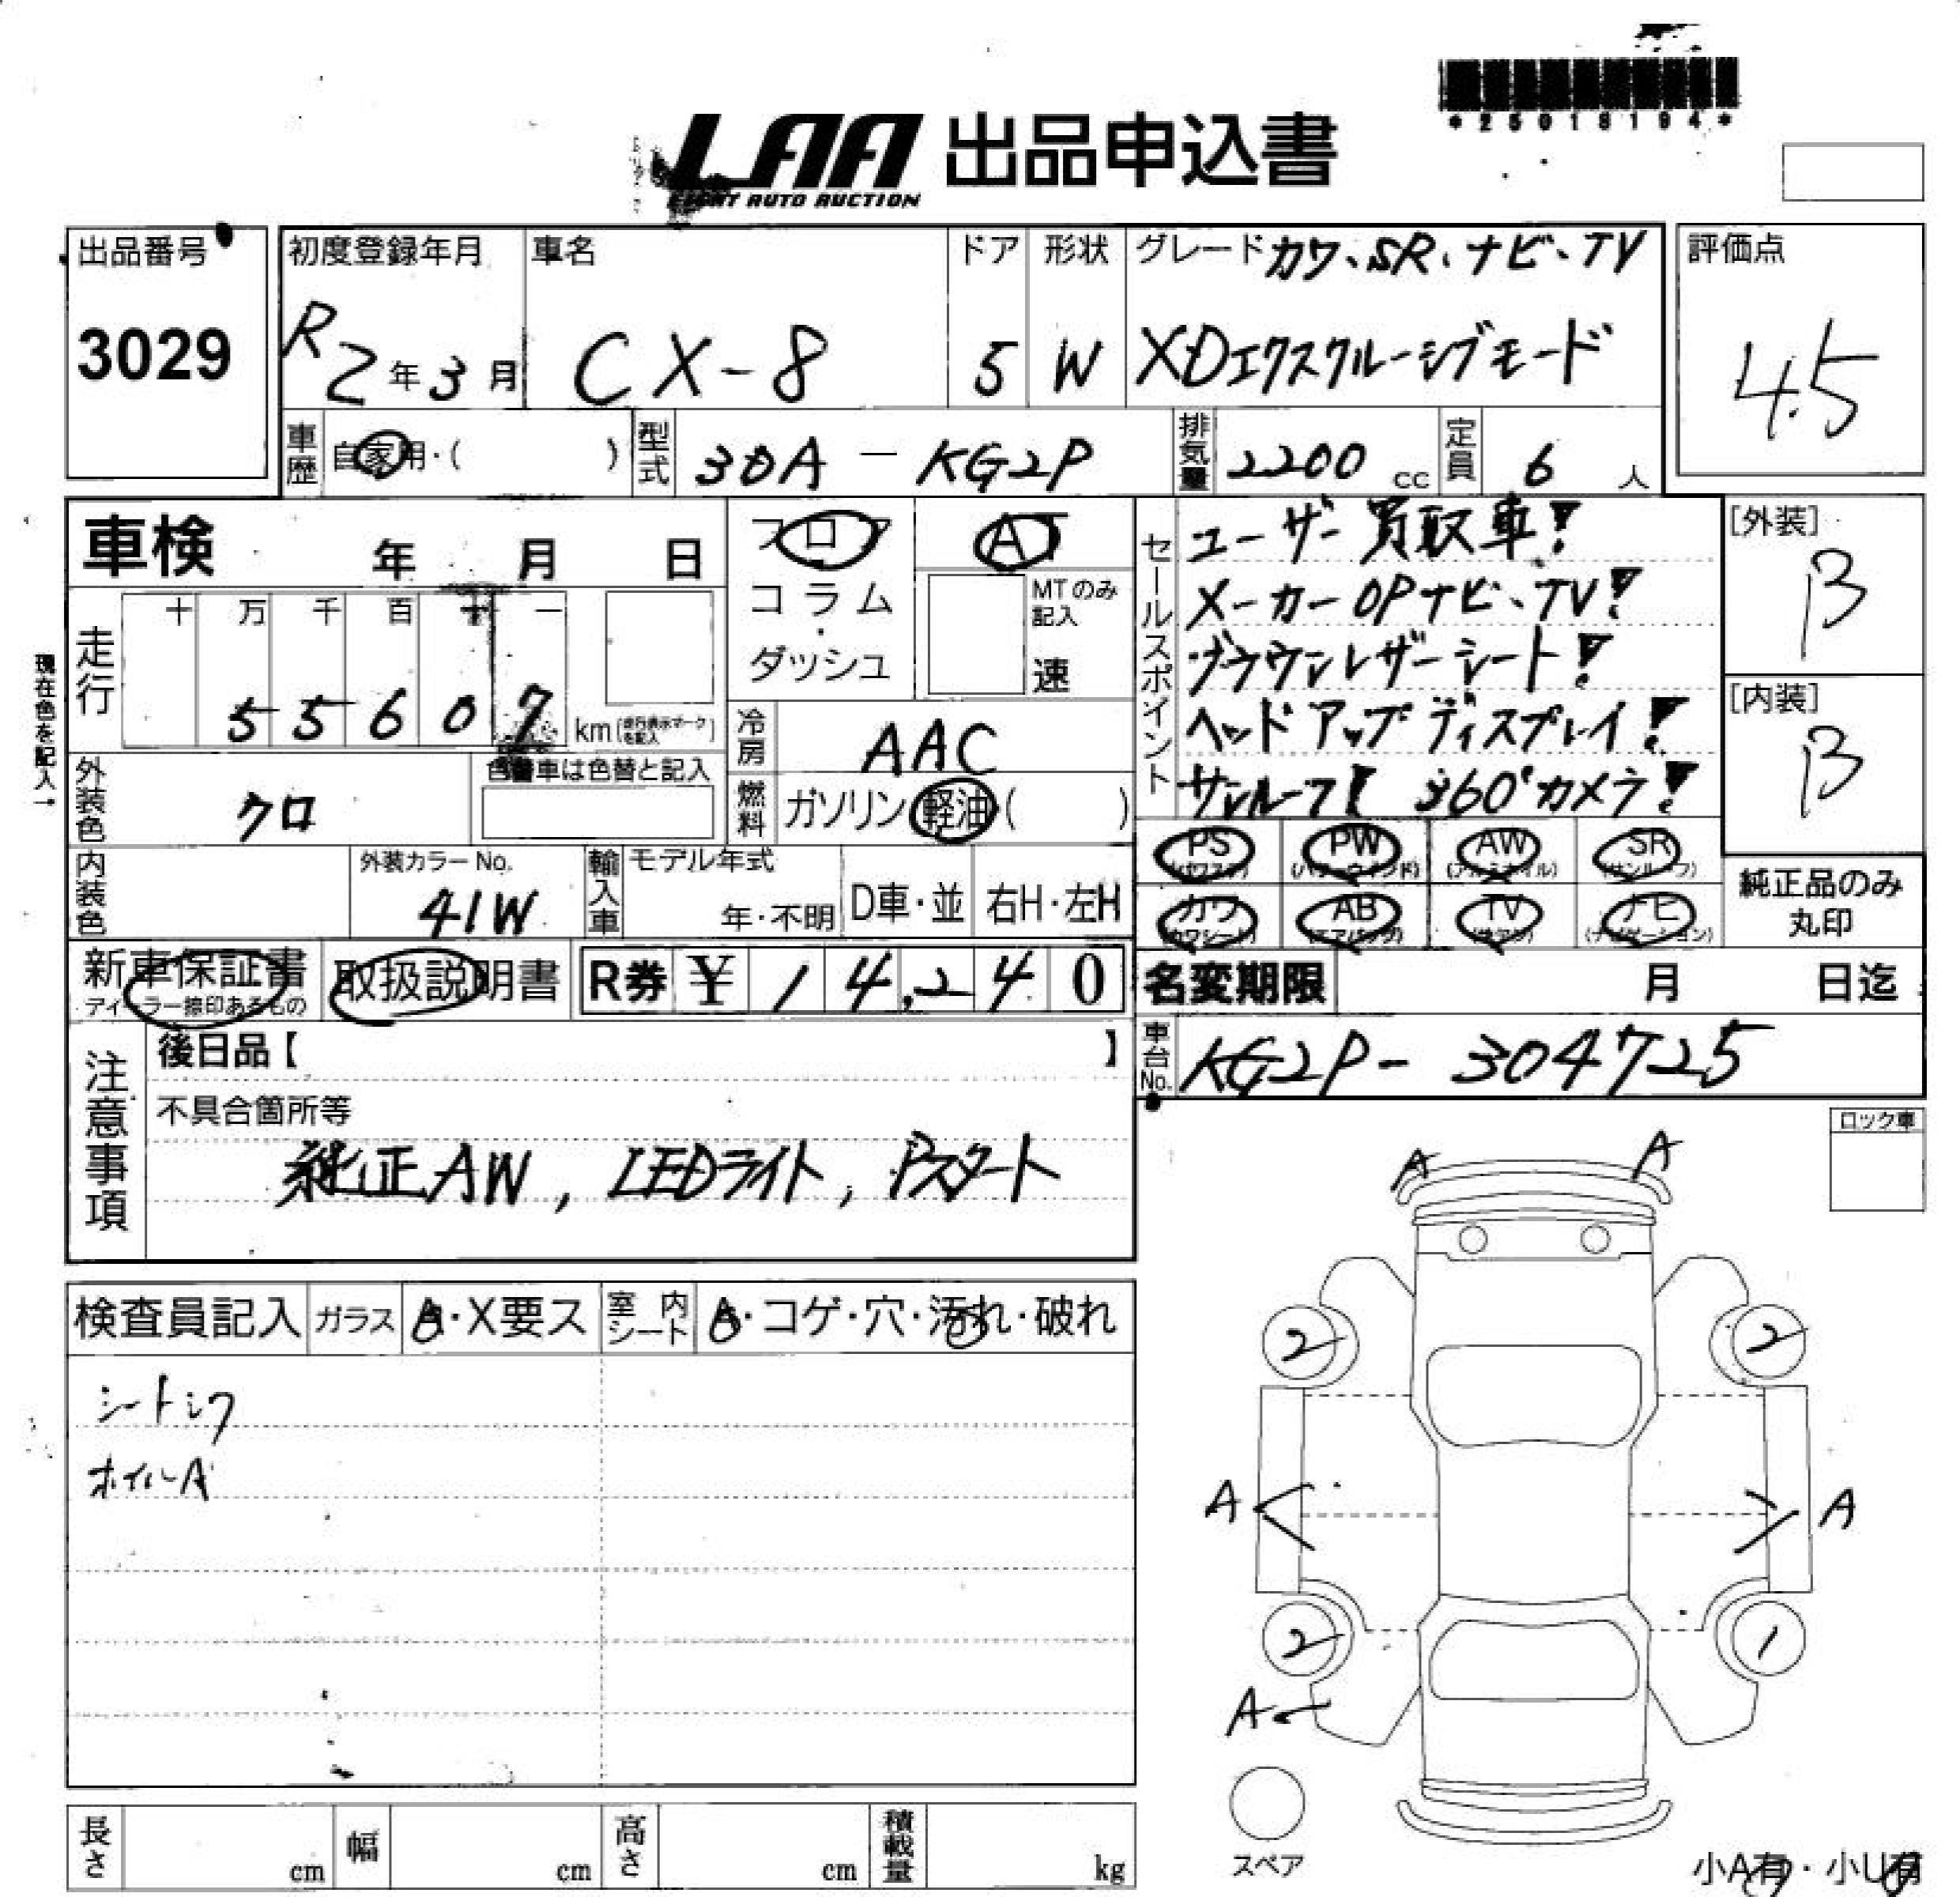 *25018194*
LAA 出品申込書
EIGHT AUTO AUCTION
出品番号
3029
初度登録年月
R2年3月
車名
CX-8
ドア
5
形状
W
グレード カワ、SR、ナビ、TV
XDエクスクルーシブモード
評価点
4.5
車歴
自家用・( )
型式
3DA-KG2P
排気量
2200 cc
定員
6 人
車検 年 月 日
フロア
コラム・
ダッシュ
AT
MTのみ
記入
速
セールスポイント
ユーザー買取車!
メーカーOPナビ、TV!
ブラウンレザーシート!
ヘッドアップディスプレイ!
サンルーフ! 360°カメラ!
[外装]
B
[内装]
B
現在色を記入→
走行
十 万 千 百 十 一
55607 km (走行表示マークを記入)
冷房
AAC
外装色
クロ
色替車は色替と記入
燃料
ガソリン 軽油 ( )
内装色
外装カラーNo.
41W
輸入車
モデル年式
年・不明
D車・並
右H・左H
PS
(パワステ)
PW
(パワーウィンド)
AW
(アルミホイル)
SR
(サンルーフ)
カワ
(カワシート)
AB
(エアバック)
TV
ナビ
(ナビゲーション)
純正品のみ
丸印
新車保証書
ディーラー捺印あるもの
取扱説明書
R券 ¥ 14,240
名変期限 月 日迄
車台No.
KG2P-304725
注意事項
後日品【 】
不具合箇所等
純正AW, LEDライト, Pスタート
ロック車
検査員記入
ガラス
A・X要ス
室内シート
A・コゲ・穴・汚れ・破れ
シートシワ
ホイルA
A
A
2
2
A
A
2
1
A
スペア
長さ cm
幅 cm
高さ cm
積載量 kg
小A有・小U有